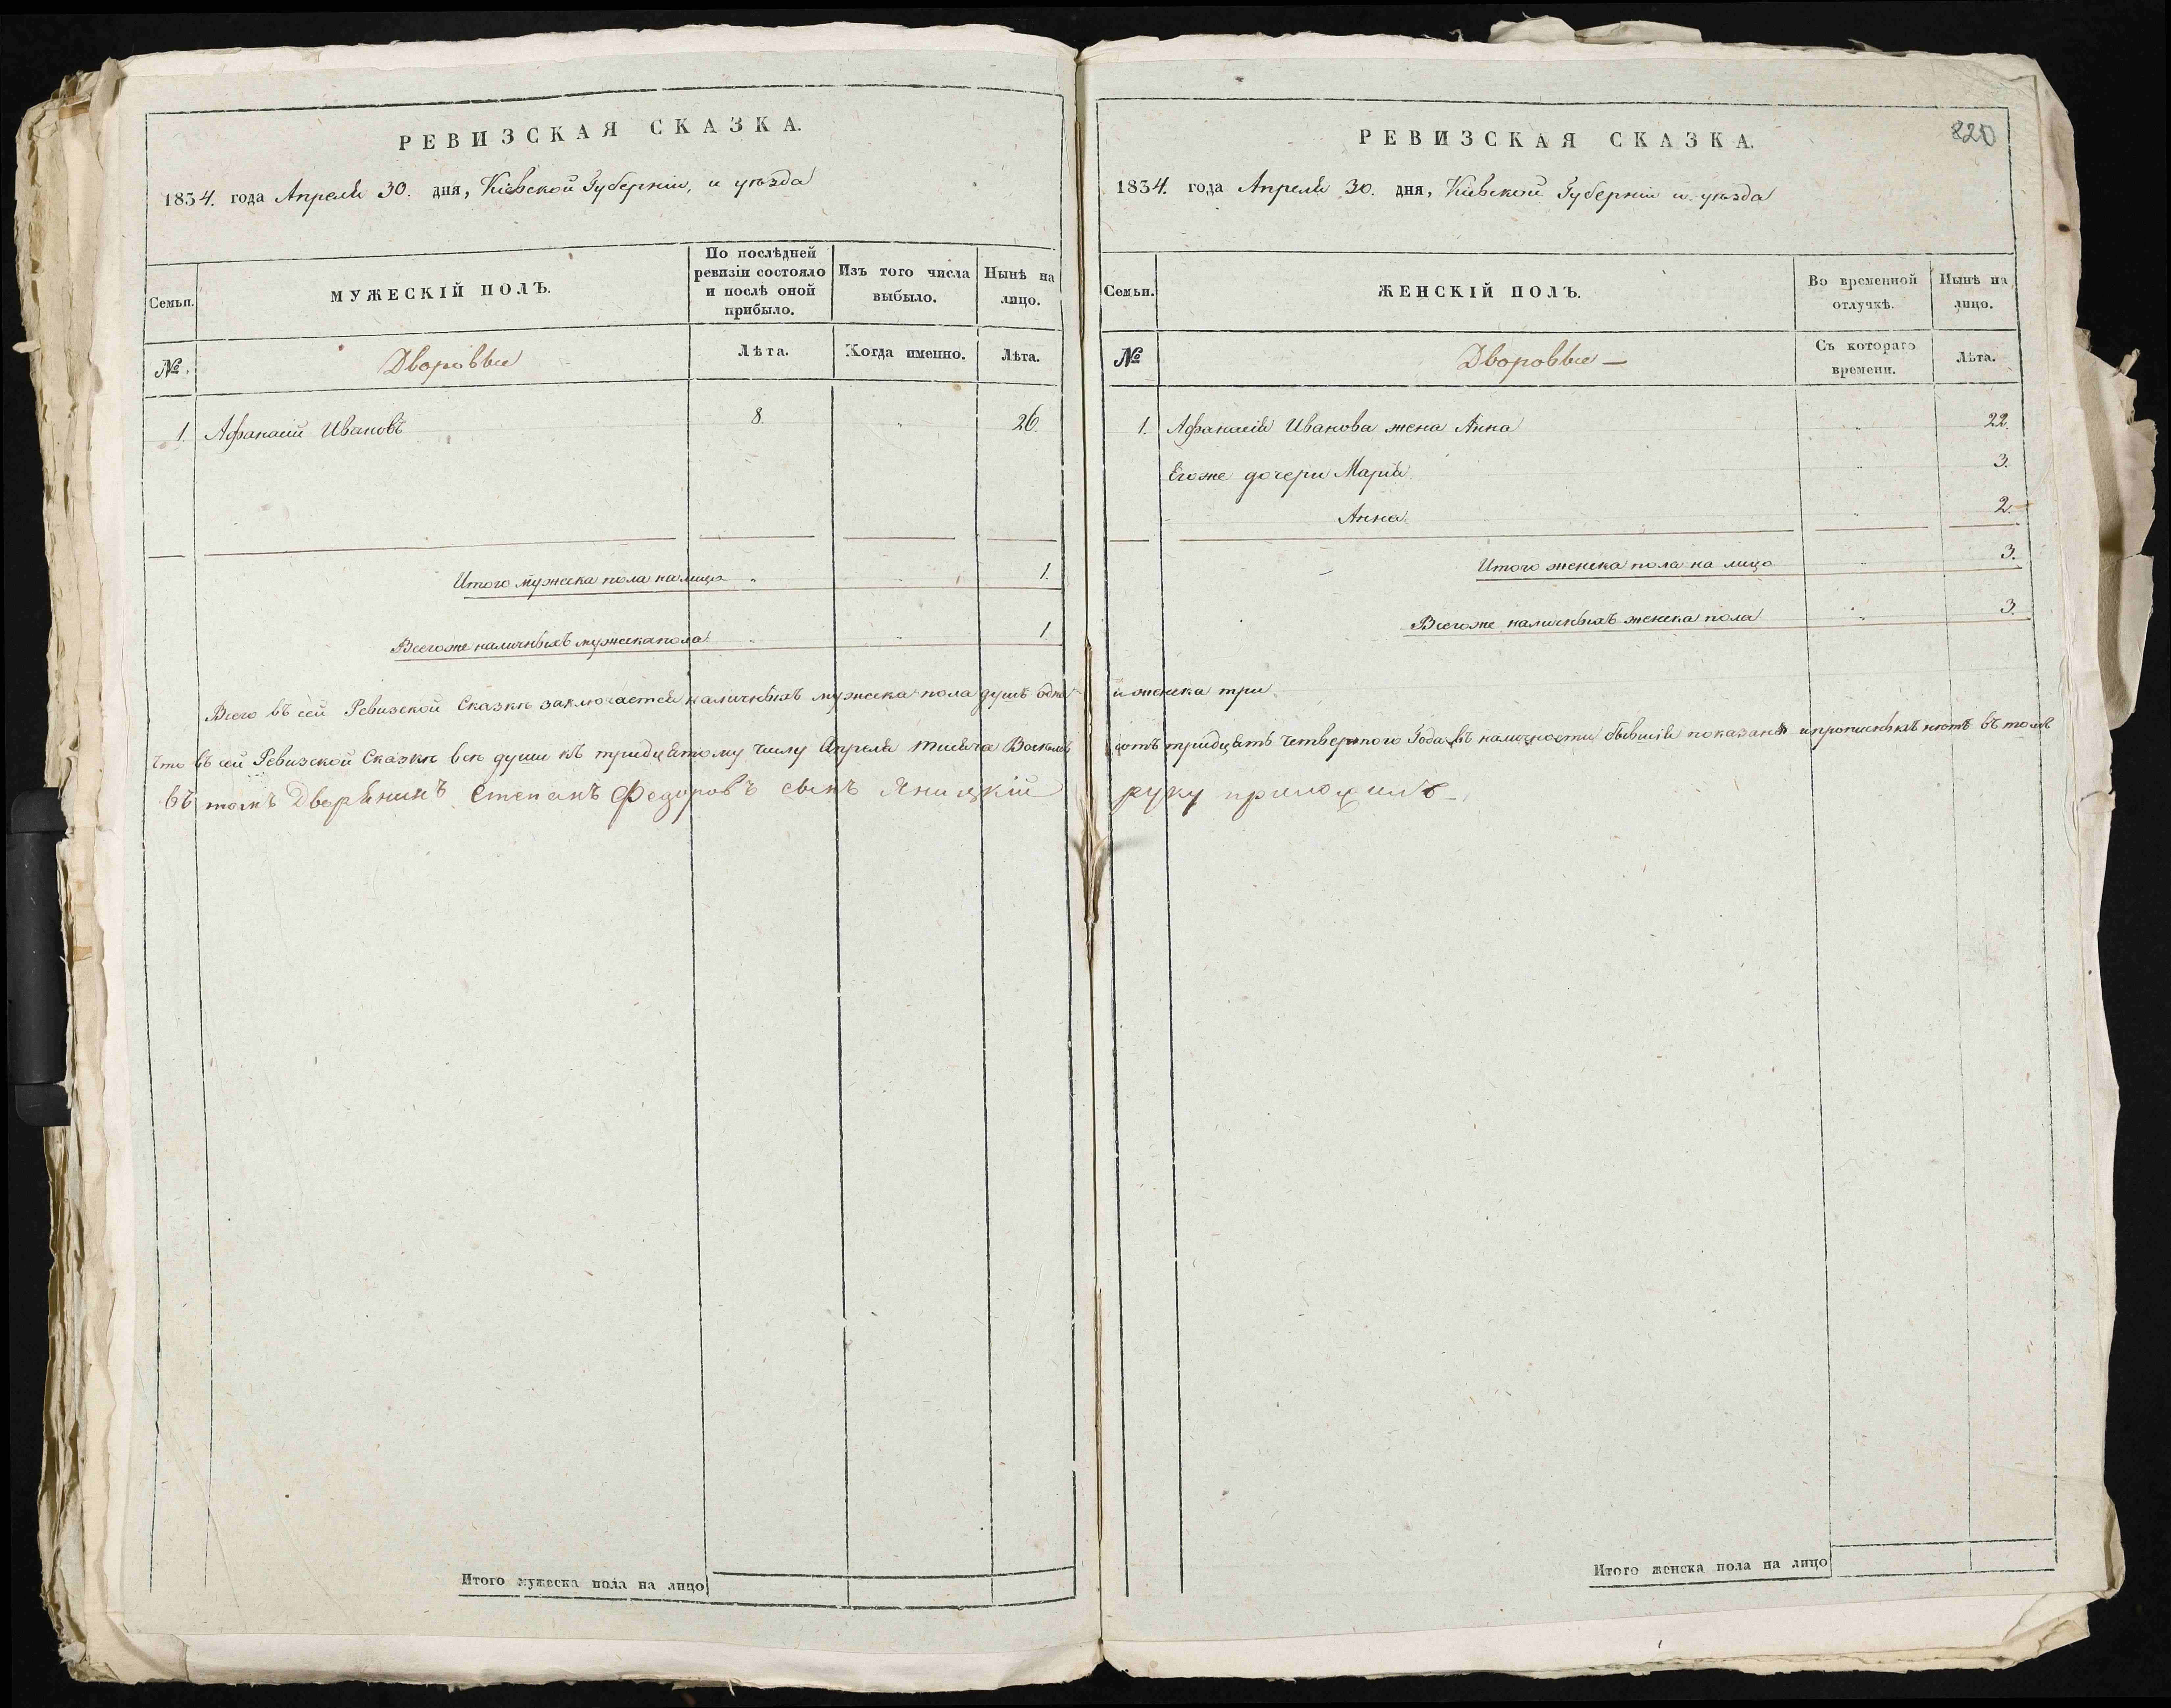 РЕВИЗСКАЯ СКАЗКА.
1834. года Апреля 30. дня, Кіевской Губерніи, и уѣзда
Семьи.
МУЖЕСКІЙ ПОЛЪ.
По послѣдней ревизіи состояло и послѣ оной прибыло.
Изъ того числа выбыло.
Нынѣ на лицо.
№.
Дворовые
Лѣта.
Когда именно.
Лѣта.
1. Афанасий Ивановъ 8. " 26.
Итого мужеска пола на лицо " " 1.
Всего же наличныхъ мужеска пола " " 1
Всего въ сей Ревизской Сказкѣ заключается наличныхъ мужеска пола душъ одна
Что въ сей Ревизской Сказкѣ всѣ души къ тридцятому числу Апреля тысяча Восемь
въ томъ Дворянинъ Степанъ Федоровъ сынъ Яницкій
Итого мужеска пола на лицо
820
РЕВИЗСКАЯ СКАЗКА.
1834. года Апреля 30. дня, Кіевской Губерніи и уѣзда
Семьи.
ЖЕНСКІЙ ПОЛЪ.
Во временной отлучкѣ.
Нынѣ на лицо.
№
Дворовые —
Съ котораго времени.
Лѣта.
1. Афанасія Иванова жена Анна " 22.
Его же дочери Марія " 3.
Анна. " 2.
Итого женска пола на лицо " 3.
Всего же наличныхъ женска пола " 3.
и женска три.
сотъ тридцять Четвертого Года въ наличности бывшія показаны и прописныхъ нѣтъ въ томъ
руку приложилъ
Итого женска пола на лицо